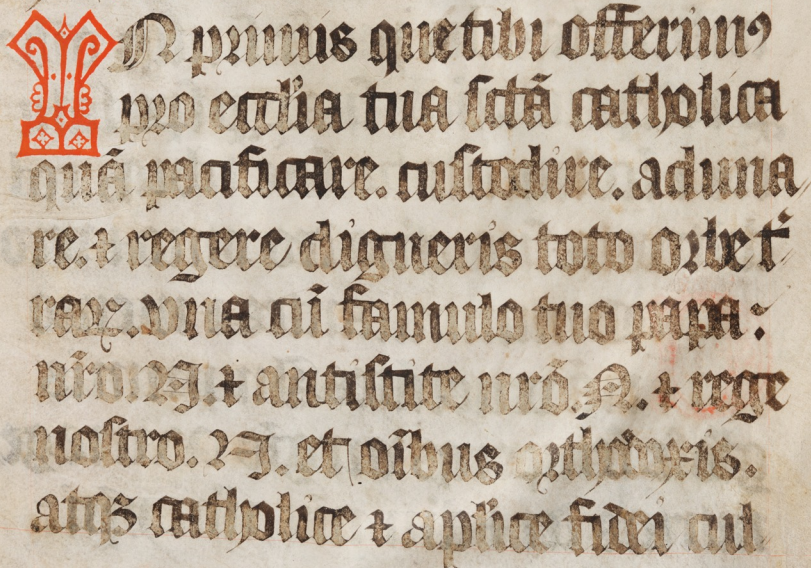 IN primis que tibi offerimꝰ
pro eccl̄ia tua sctā catholica
quā pacificare. custodire. aduna
re. ⁊ regere digneris toto orbe t̾
raꝝ. vna cū famulo tuo papa:
nr̄o N. ⁊ antistite nrō. N. ⁊ rege
nostro. N. et oībus orthodoxis.
atqꝫ catholice ⁊ apl̄ice fidei cul